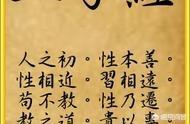 人之初·性本善·
性相近·習相遠·
苟不教·性乃遷·
教之道·貴以